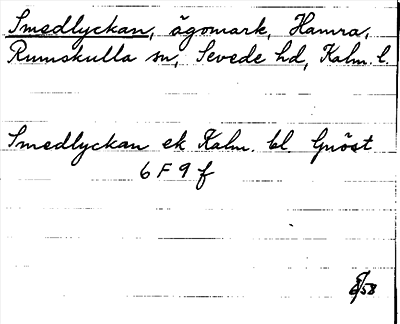 Smedlyckan, ägomark, Hamra,
Rumskulla sn, Sevede hd, Kalm. l.
Smedlyckan ek Kalm. bl Gnöst
6 F 9 f
58